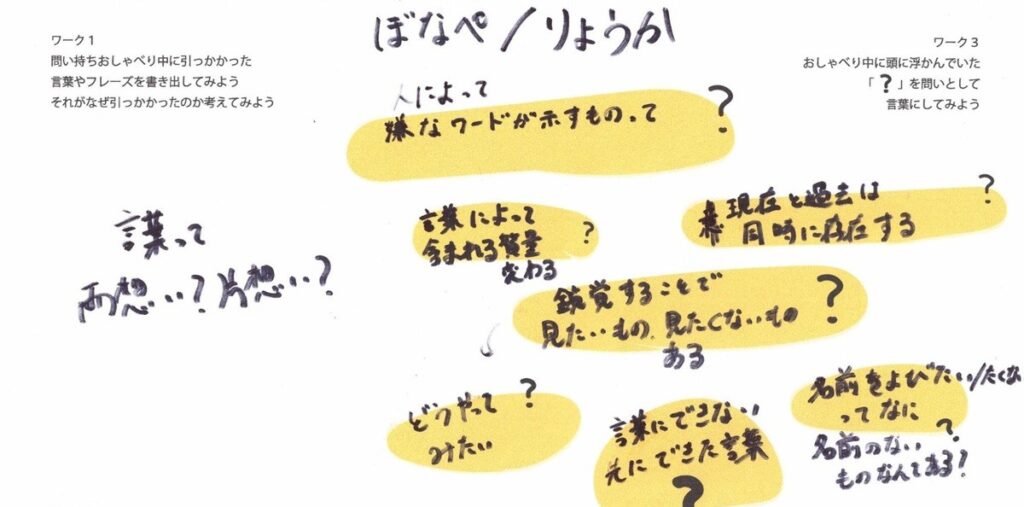 ワーク 1
問い持ちおしゃべり中に引っかかった
言葉やフレーズを書き出してみよう
それがなぜ引っかかったのか考えてみよう
ぼなぺ/りょうか
ワーク 3
おしゃべり中に頭に浮かんでいた
「?」を問いとして
言葉にしてみよう
人によって
嫌なワードが示すものって
?
言葉って
両想い?片想い?
言葉によって
含まれる質量
変わる
?
現在と過去は
同時に存在する
?
錯覚することで
見たいもの、見たくないもの
ある
?
どうやって
みたい
?
言葉にできない
先にできた言葉
?
名前をよびたい/たくない
ってなに
?
名前のない
ものなんてある!